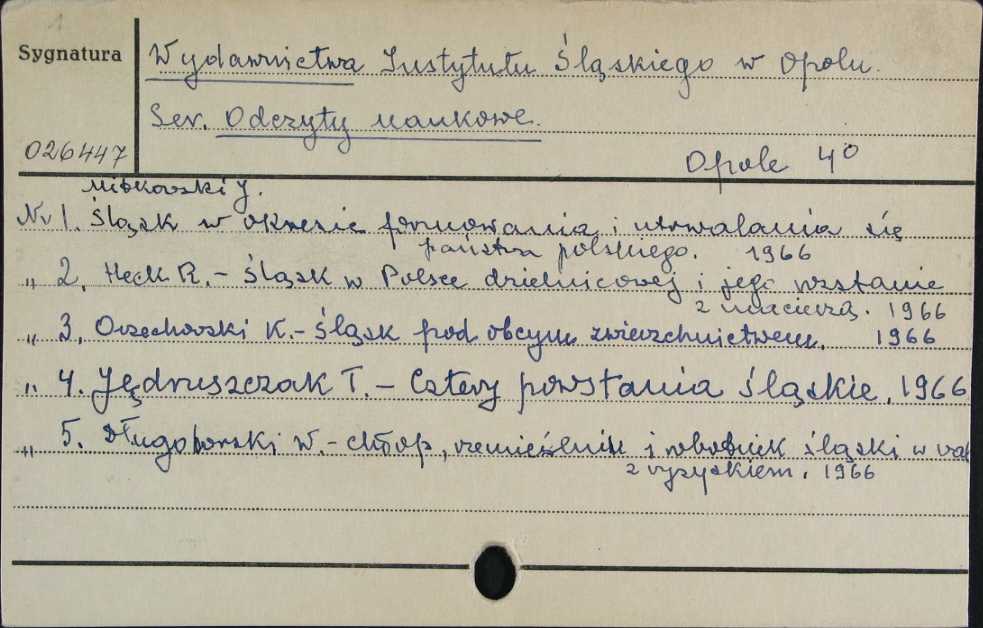 Sygnatura
Wydawnictwa Instytutu Śląskiego w Opolu.
Ser. Odczyty naukowe.
026447
Opole 4°
Mitkowski J.
Nr 1. Śląsk w okresie formowania i utrwalania się
państwa polskiego. 1966
„ 2. Heck R. - Śląsk w Polsce dzielnicowej i jego
z macierzą. 1966
„ 3. Orzechowski K. - Śląsk pod obcym zwierzchnictwem. 1966
„ 4. Jędruszczak T. - Cztery powstania śląskie. 1966
„ 5. Długoborski W. - chłop, rzemieślnik i robotnik śląski w wal
z wyzyskiem. 1966